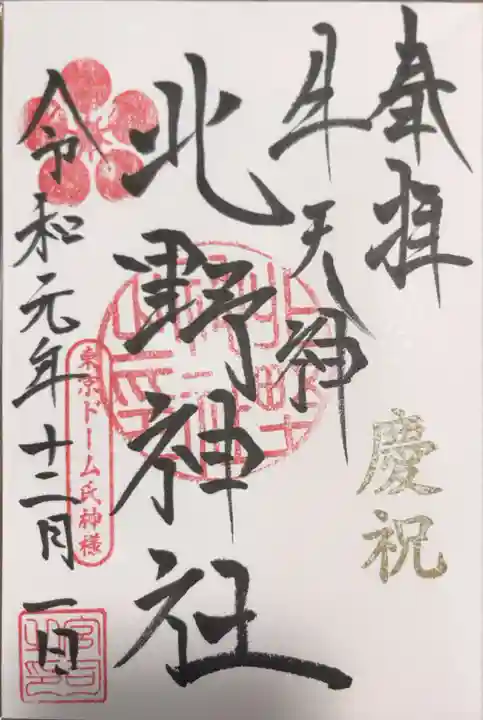 奉拝
慶祝
牛天神
北野神社
令和元年十二月一日
東京ドーム氏神様